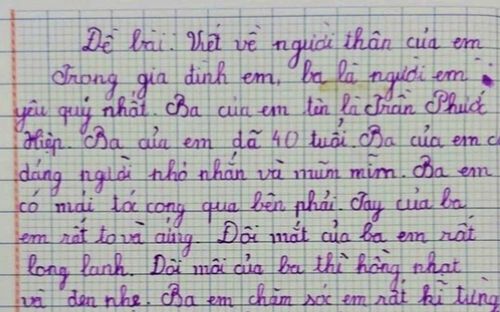 Đề bài: Viết về người thân của em
Trong gia đình em, ba là người em
yêu quý nhất. Ba của em tên là Trần Phước
Hiệp. Ba của em đã 40 tuổi. Ba của em c
dáng người nhỏ nhắn và mũm mĩm. Ba em
có mái tóc cong qua bên phải. Tay của ba
em rất to và cứng. Đôi mắt của ba em rất
long lanh. Đôi môi của ba thì hồng nhạt
và đen nhẹ. Ba em chăm sóc em rất kĩ từng